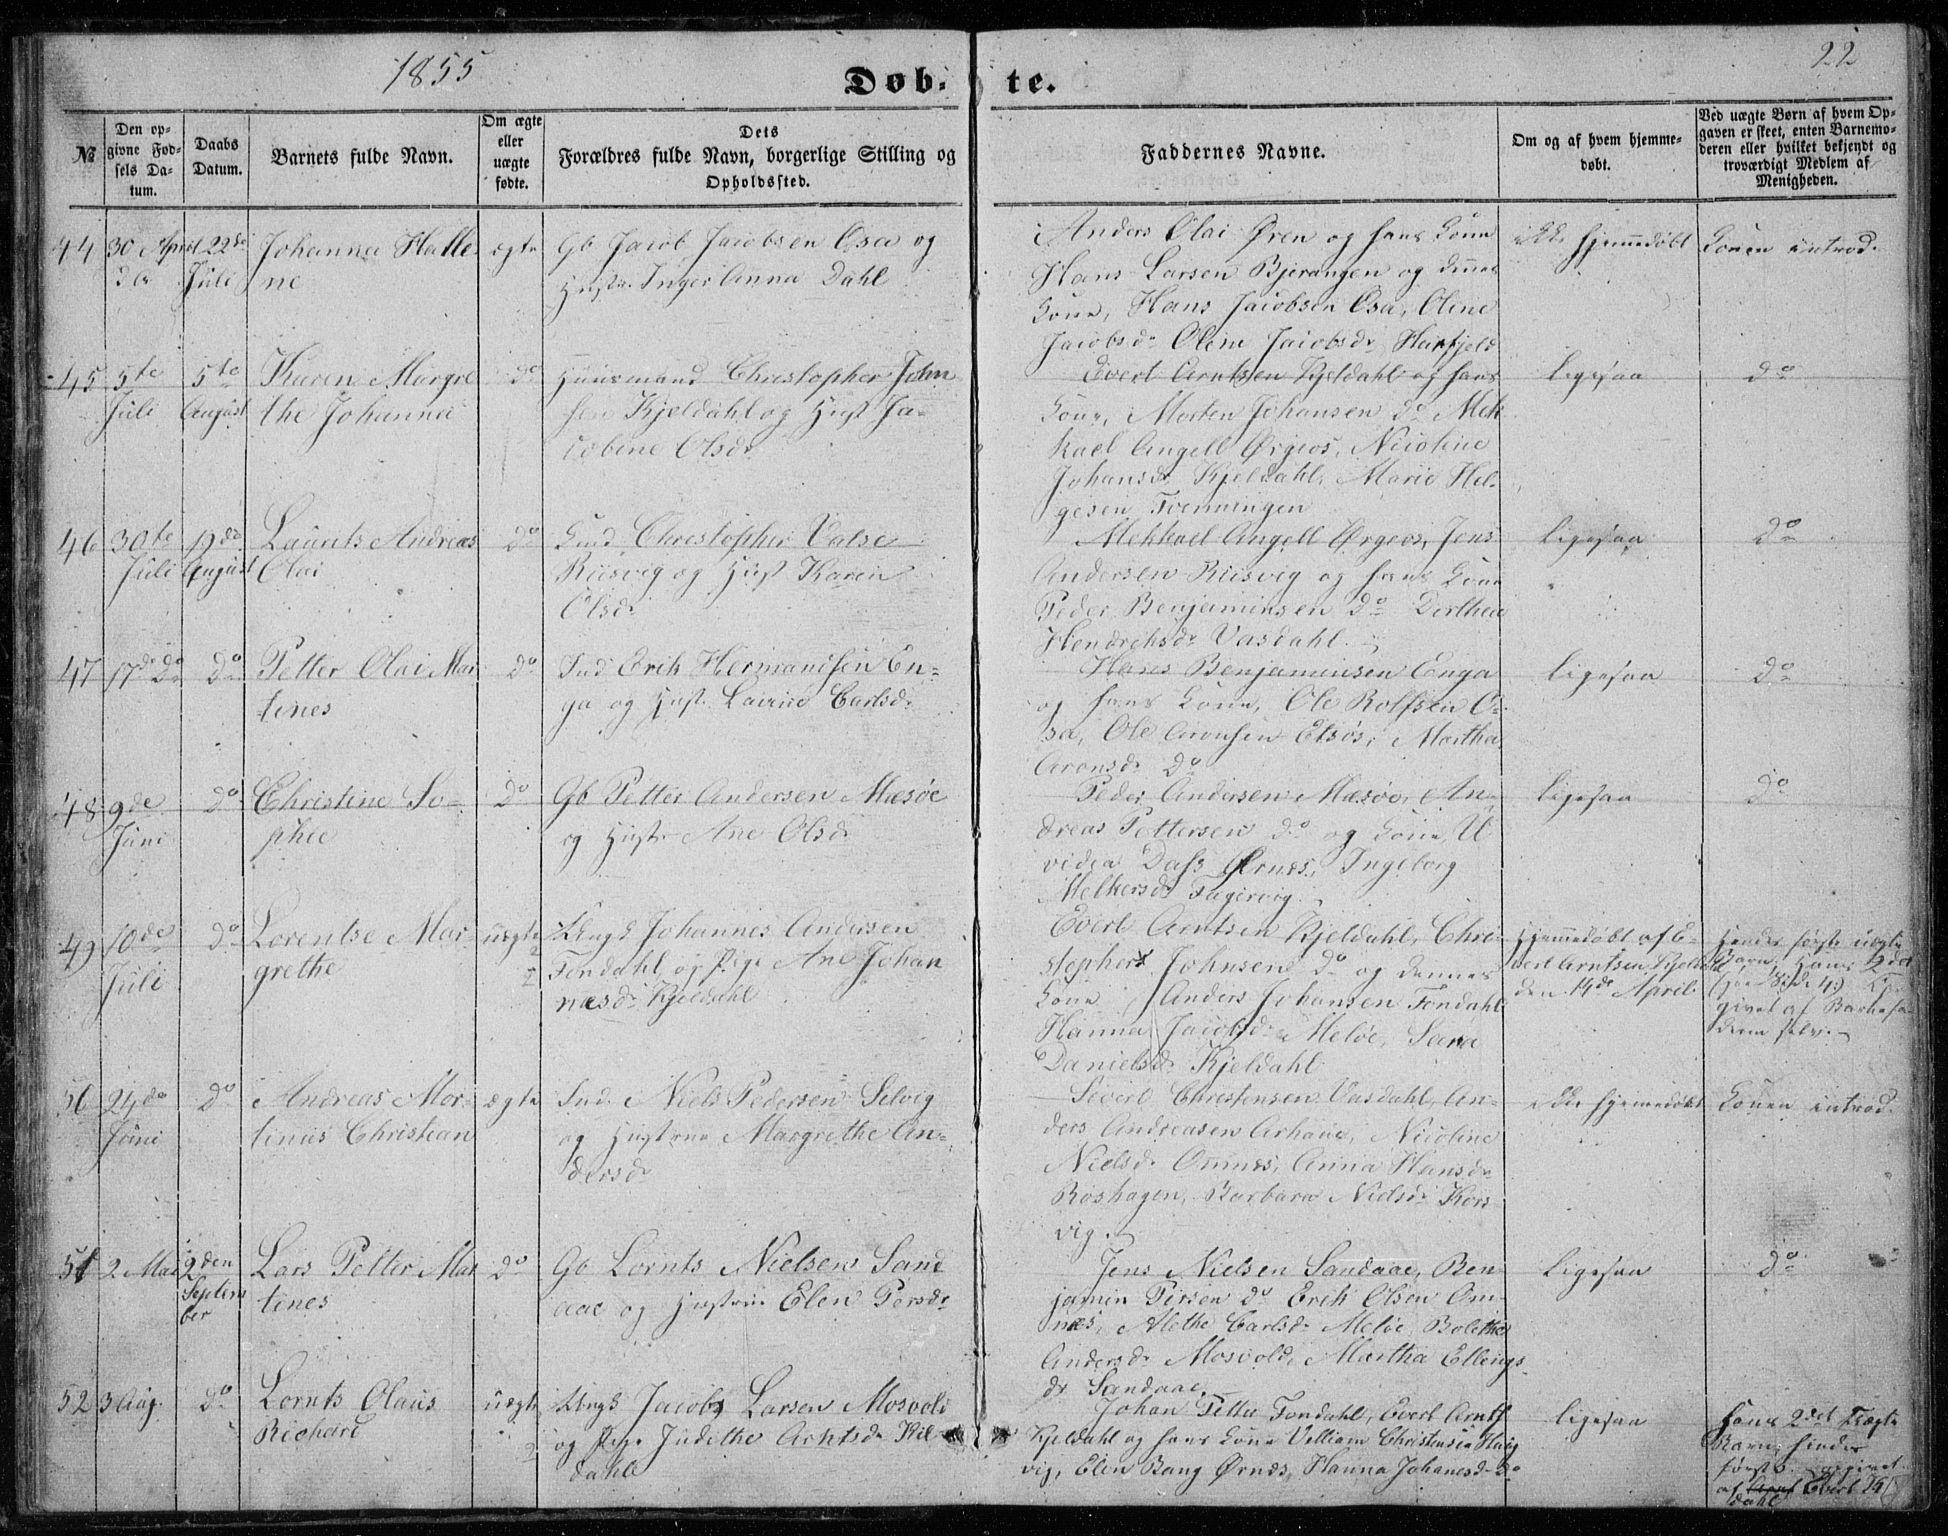 1855
22
Døb-te.
№
Den op-
givne Fød-
sels Da-
tum.
Daabs
Datum.
Barnets fulde Navn.
Om ægte
eller
uægte
fødte.
Dets
Forældres fulde Navn, borgerlige Stilling og
Opholdssted.
Faddernes Navne.
Om og af hvem hjemme-
døbt.
Ved uægte Børn af hvem Op-
gaven er skeet, enten Barnemo-
deren eller hvilket bekjendt og
troværdigt Medlem af
Menigheden.
44
30 April
22de
Juli
Johanna Halle
ne
ægte
Gb Jacob Jacobsen Osa og
Hustr. Inger Anna Dahl
Anders Olai Øren og hans Kone
Hans Larsen Bjerangen og dennes
Kone, Hans Jacobsen Osa, Oline
Jacobsdr Oline Jacobsdr
ikke hjemmedøbt
Konen introd.
45
5te
Juli
5te
August
Karen Margre
the Johanna
do
Huusmand Christopher John
sen Kjeldahl og Hust Ja-
cobine Olsdr
Evert Arntsen Kjeldahl og hans
Kone, Morten Johansen do Mek
kael Angell Ørgeos, Nicoline
Johansdr Kjeldahl, Marie Hel-
gesen Tvenningen
ligesaa
do
46
30te
Juli
19de
August
Laurits Andreas
Olai
do
Christopher Valse
Riisvig og Hust Karen
Olsdr
Mekkael Angell Ørgeos, Jens
Andersen Riisvig og hans Kone
Peder Benjaminsen do Dorthea
Hendrichsdr Vasdahl.
ligesaa
do
47
17de do
do
Petter Olai Mar
tines
do
Ind Erik Hermandsen En-
ga og Hust. Laurine Carlsdr
Hans Benjaminsen Enga
og hans Kone, Ole Rolfsen O-
sa, Ole Aronsen Etsøs, Martha
Aronsdr do
ligesaa
do
48
9de
Juni
do
Christine So-
phie
do
Gb Petter Andersen Mesøe
og Hustr Ane Olsdr
Peder Andersen Mesøe, An-
dreas Pettersen do og Kone, U
videa Dass Ørnes, Ingeborg
Melkersdr Fagervig
ligesaa
do
49
10de
Juli
do
Lorentse Mar-
grethe
uægte
2
1
Ungk Johannes Andersen
Fondahl og Pige Ane Johan
nesdr Kjeldahl
Evert Arntsen Kjeldahl, Chri-
stopher Johnsen do og dennes
Kone Anders Johansen Fondahl
Hanna Jacobsdr Meløe, Sara
Danielsdr Kjeldahl
Hjemmedøbt af E-
vert Arntsen Kjeldahl
den 14de April
Hendes første uægte
Barn, Hans 2det
(see Side 4) Op-
givet af Barnefa-
deren selv.
50
24de
Juni
do
Andreas Mar-
tinus Christian
ægte
Ind. Niels Pedersen Selvig
og Hustrue Margrethe An-
dersdr
Sivert Christensen Vasdahl, An-
ders Andreasen Arhaug, Nicoline
Nielsdr Ounes, Anna Hansdr
Roshagen, Barbara Nielsdr Kors
vig.
ikke hjemmedøbt
Konen introd.
51
2 Mai
2den
Septem
ber
Lars Petter Mar
tines
do
Gb Lornts Nielsen Sand
aae og Hustrue Elen Persdr
Jens Nielsen Sandaae, Ben-
jamin Persen do Erik Olsen Om-
næs, Alethe Carlsdr Meløe, Bolethe
Andersdr Mosvold, Martha Ellings
dr Sandaae.
ligesaa
do
52
3 Aug.
do
Lornts Olaus
Richard
uægte
2
Ungk Jacob Larsen Mosvold
og Pige Judithe Arntsdr Kiel-
dahl
Johan Petter Fondahl, Evert Arnts
Kjeldahl og hans Kone Villiam Christensen Haug
vig, Elen Bang Ørnes, Hanna Johanesdr do
ligesaa
Hans 2det uægte
Barn, hendes
første opgivet
af Evert Kjel
dahl